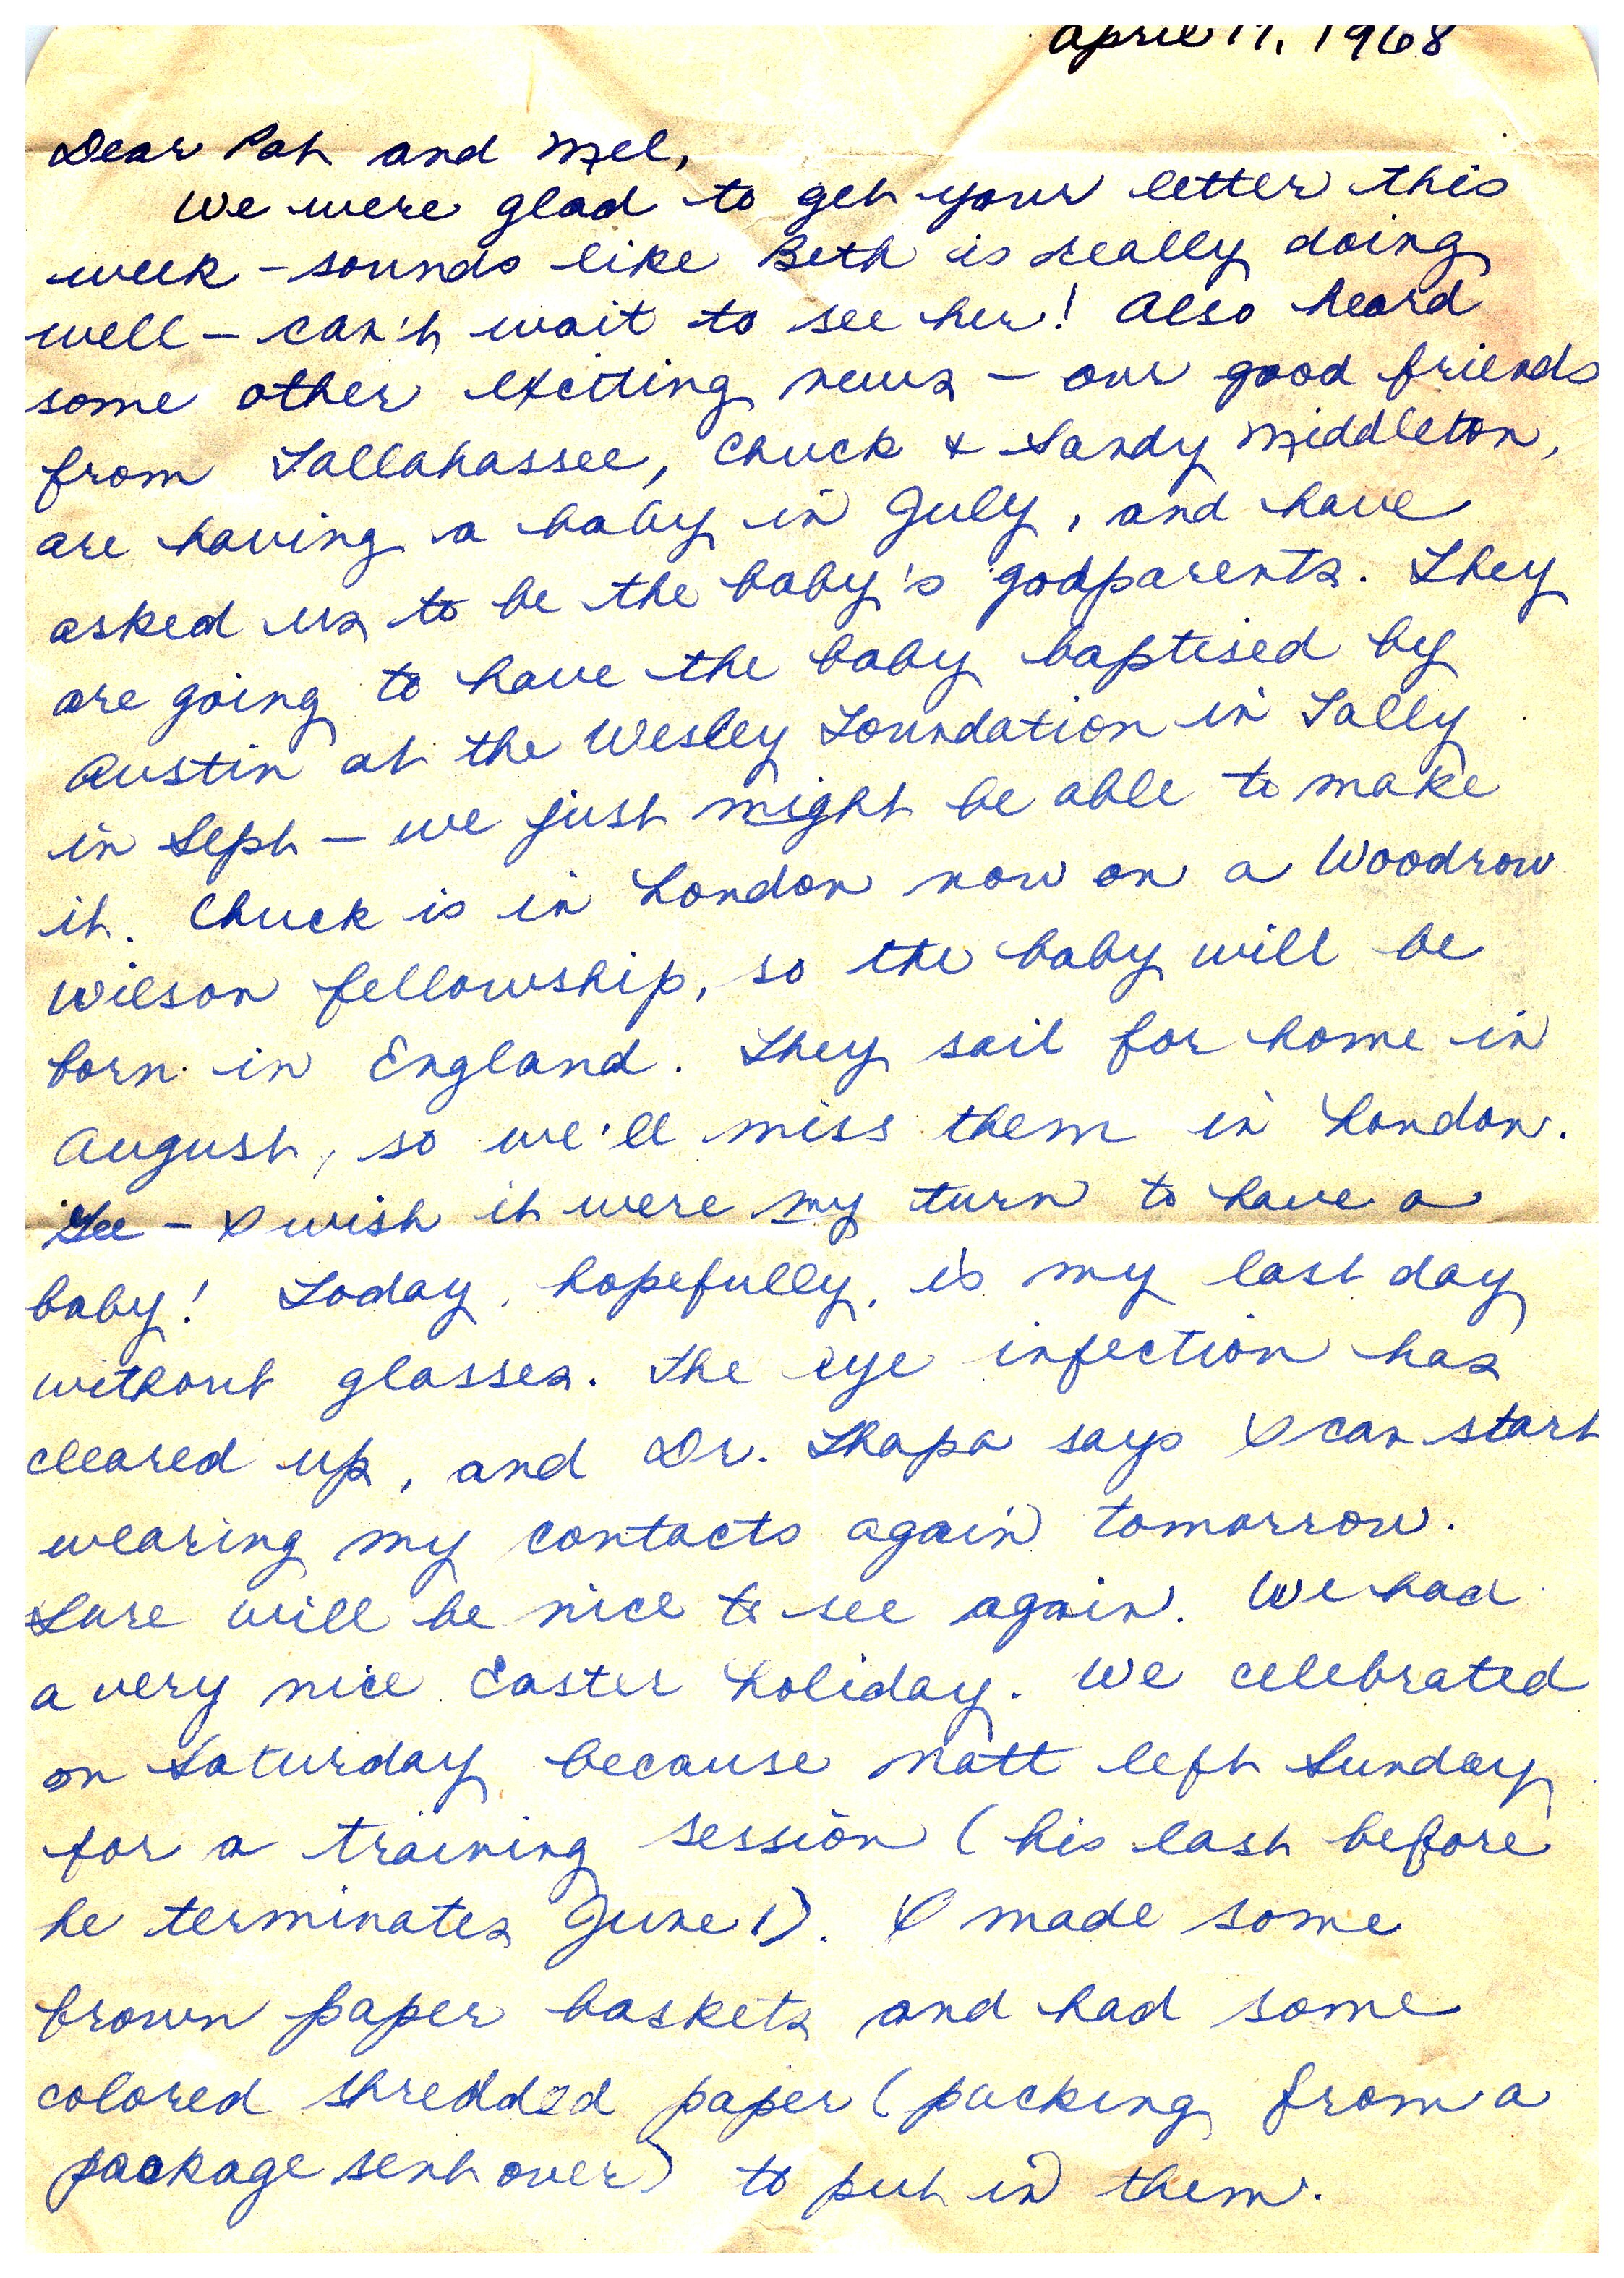 April 17, 1968
Dear Pat and Mel,
We were glad to get your letter this
week - sounds like Beth is really doing
well - can't wait to see her! Also heard
some other exciting news - our good friends
from Tallahassee, Chuck & Sandy Middleton,
are having a baby in July, and have
asked us to be the baby's godparents. They
are going to have the baby baptised by
Austin at the Wesley Foundation in Tally
in Sept - we just might be able to make
it. Chuck is in London now on a Woodrow
Wilson fellowship, so the baby will be
born in England. They sail for home in
August, so we'll miss them in London.
Gee - I wish it were my turn to have a
baby! Today, hopefully, is my last day
without glasses. The eye infection has
cleared up, and Dr. Thapa says I can start
wearing my contacts again tomorrow.
Sure will be nice to see again. We had
a very nice Easter holiday. We celebrated
on Saturday because Matt left Sunday
for a training session (his last before
he terminates June 1). I made some
brown paper baskets and had some
colored shredded paper (packing from a
package sent over) to put in them.